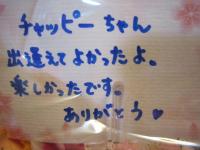 チャッピーちゃん
出逢えてよかったよ。
楽しかったです。
ありがとう♥